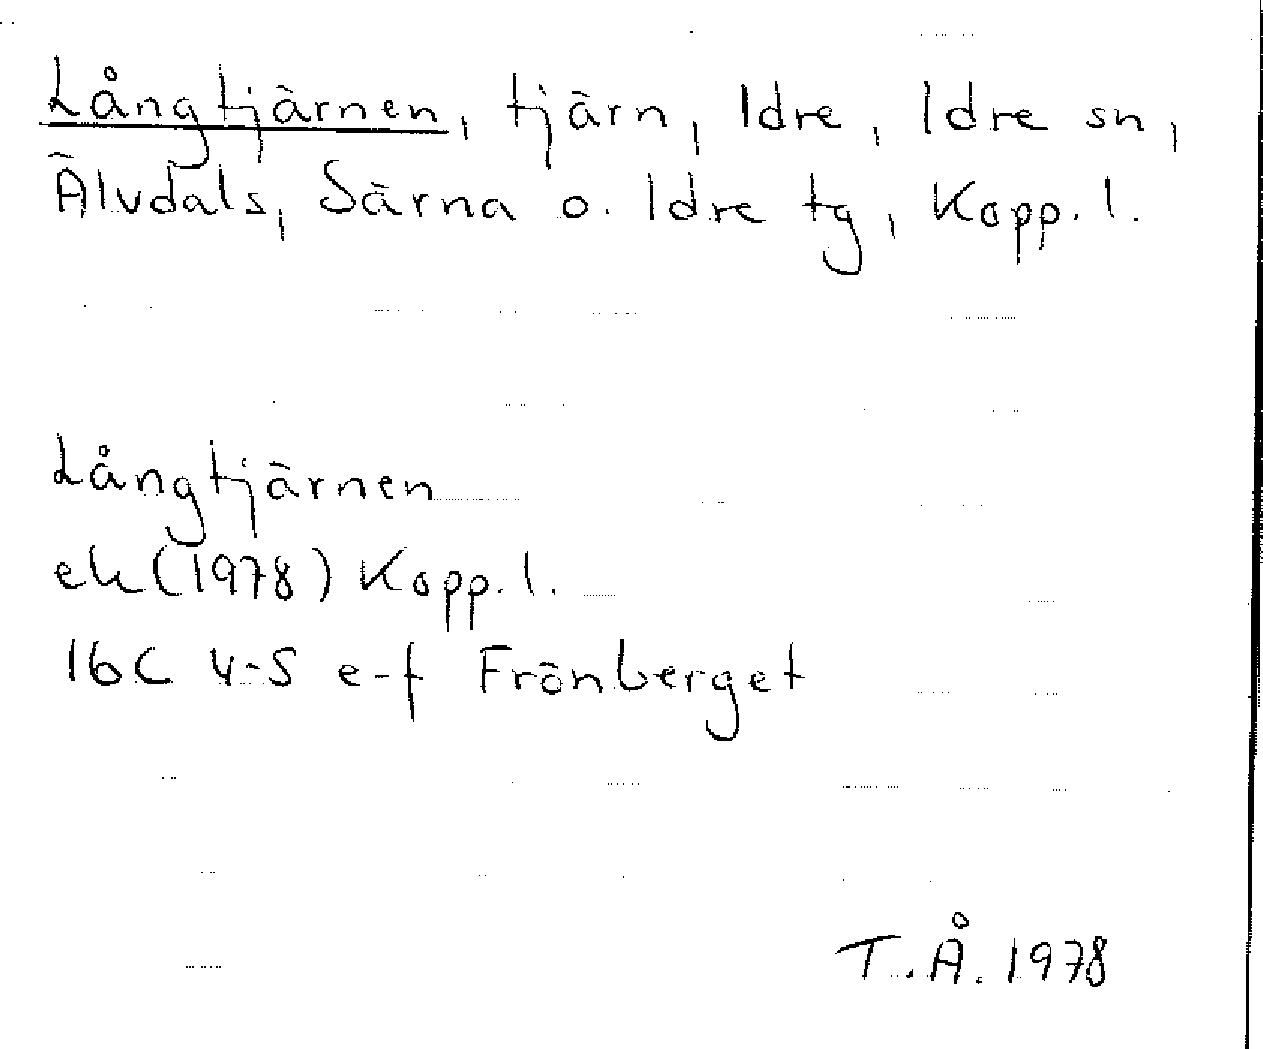 Långtjärnen, tjärn, Idre, Idre sn,
Älvdals, Särna o. Idre tg, Kopp. l.
Långtjärnen
ek (1978) Kopp. l.
16C 4-5 e-f Frönberget
T.Å. 1978